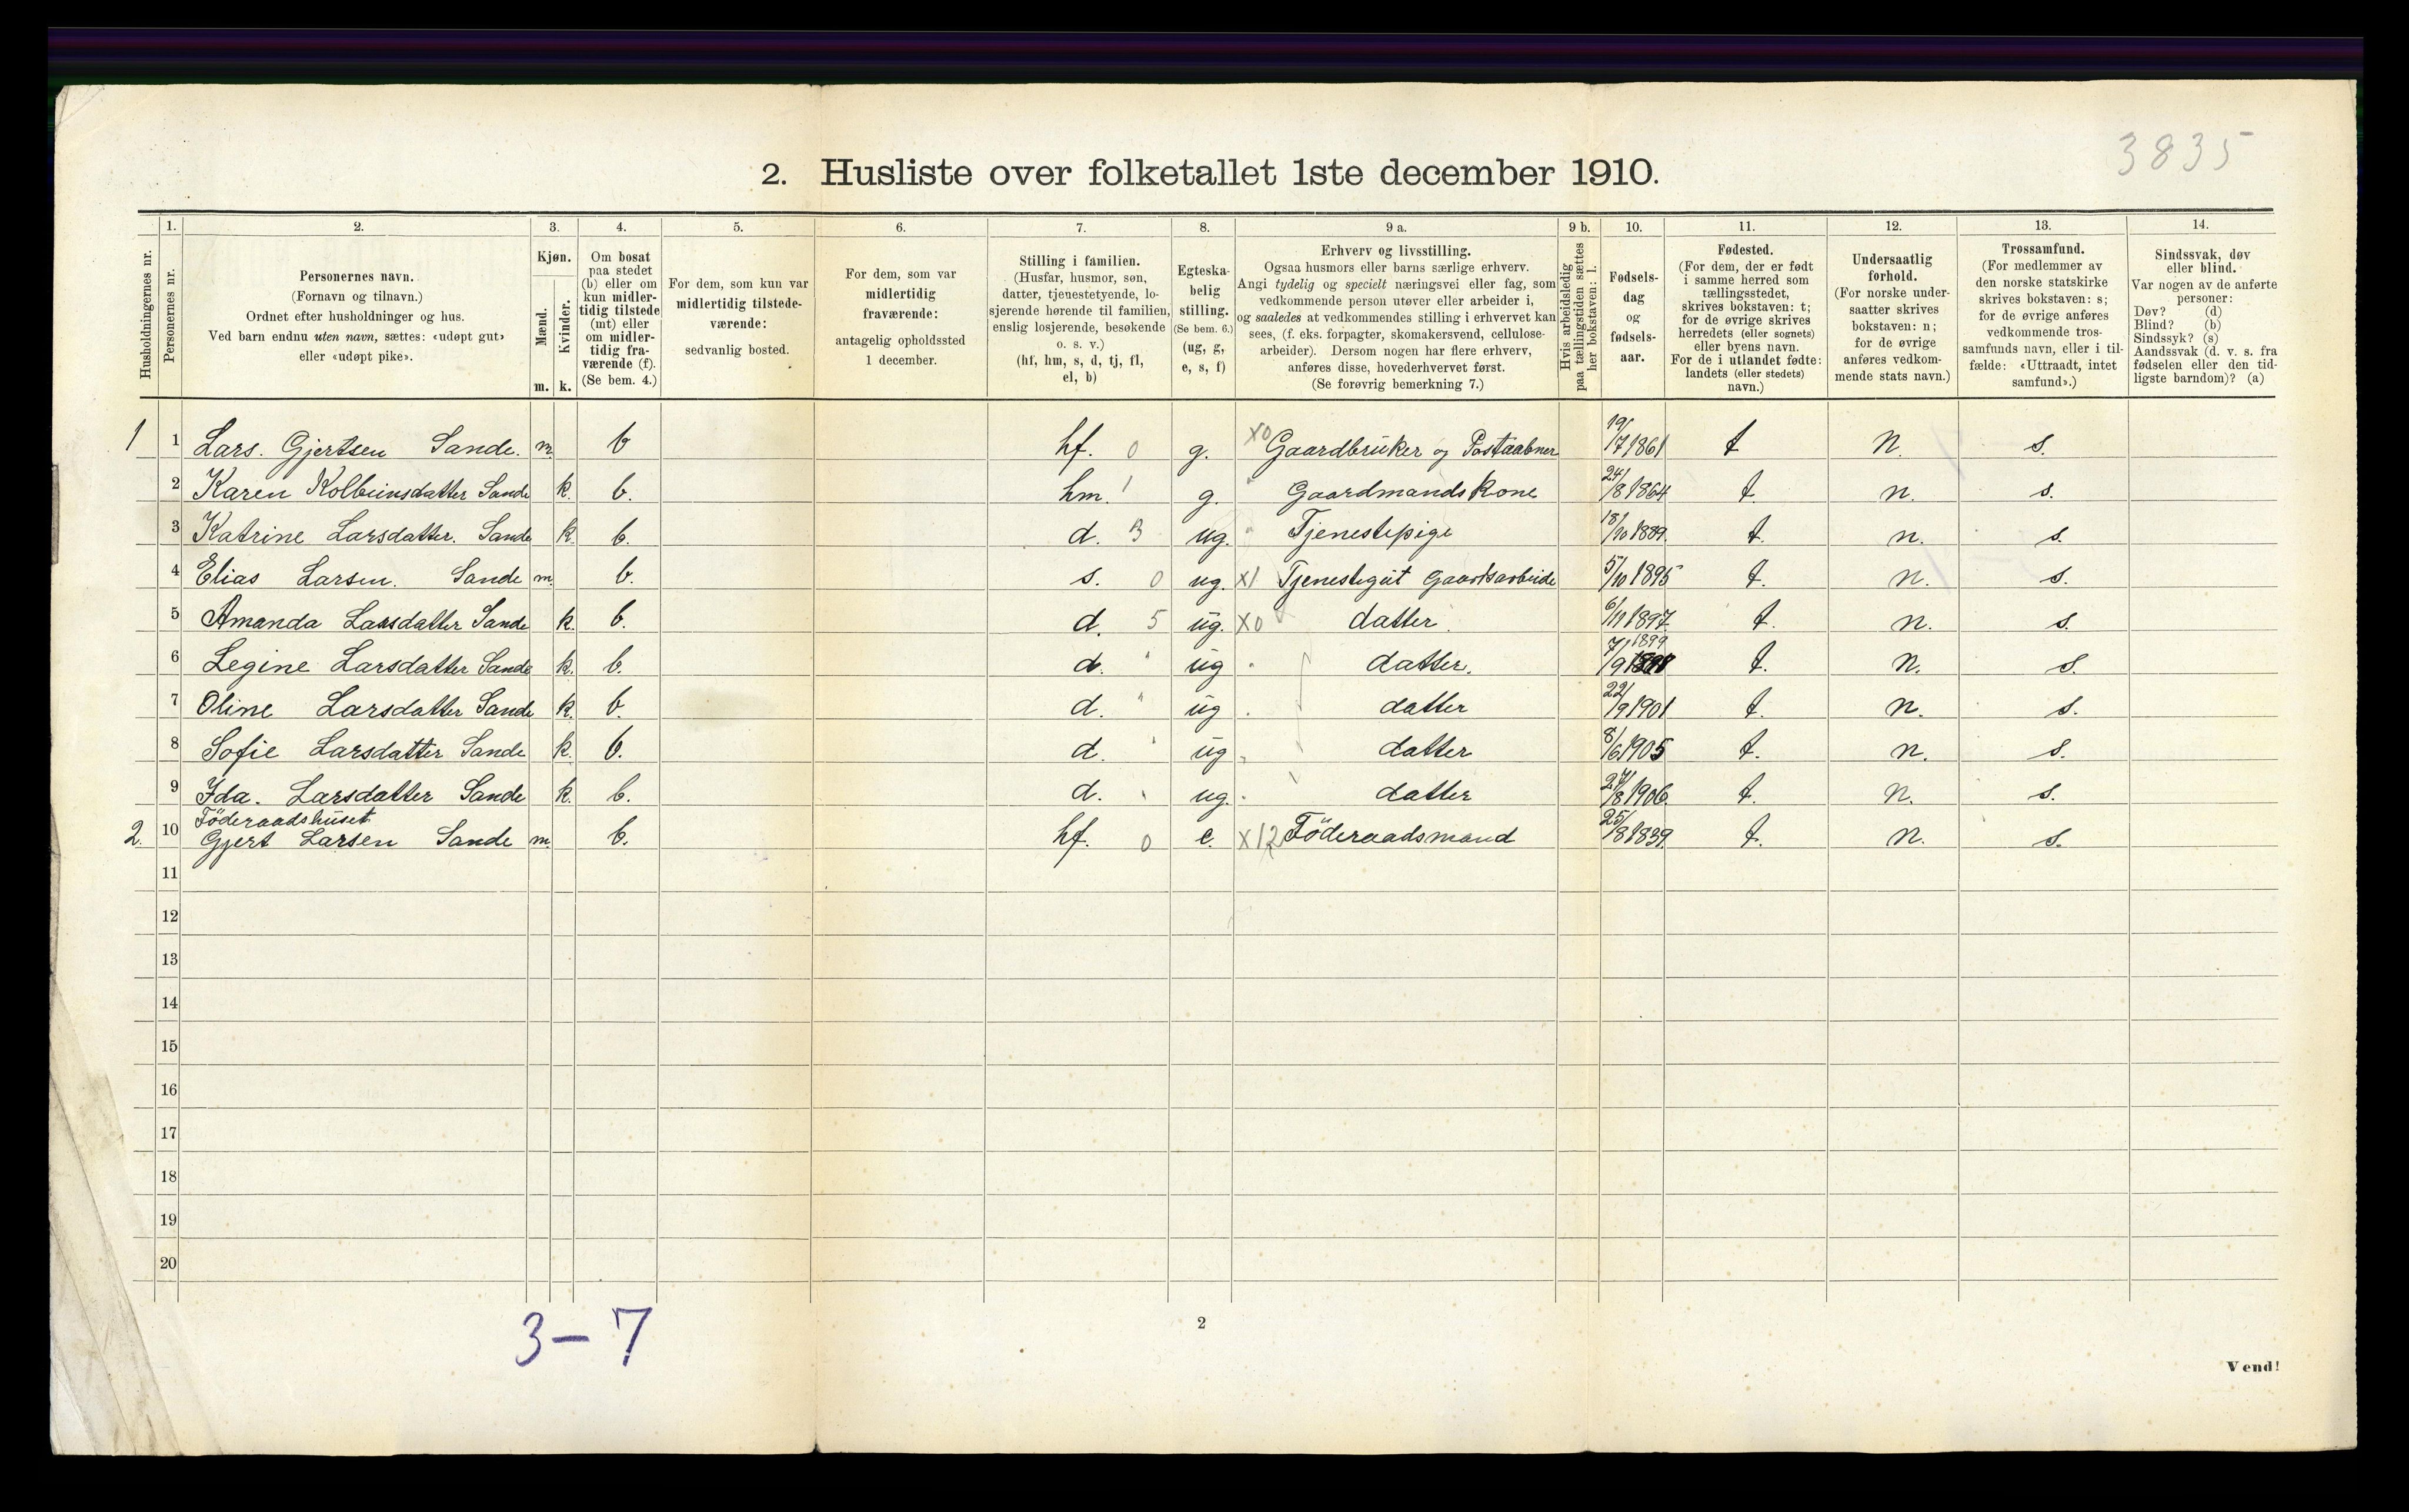 3835
2. Husliste over folketallet 1ste december 1910.
Husholdningernes nr.
1.
Personernes nr.
2.
Personernes navn.
(Fornavn og tilnavn.)
Ordnet efter husholdninger og hus.
Ved barn endnu uten navn, sættes: «udøpt gut»
eller «udøpt pike».
3.
Kjøn.
Mænd.
Kvinder.
m. k.
4.
Om bosat
paa stedet
(b) eller om
kun midler-
tidig tilstede
(mt) eller
om midler-
tidig fra-
værende (f).
(Se bem. 4.)
5.
For dem, som kun var
midlertidig tilstede-
værende:
sedvanlig bosted.
6.
For dem, som var
midlertidig
fraværende:
antagelig opholdssted
1 december.
7.
Stilling i familien.
(Husfar, husmor, søn,
datter, tjenestetyende, lo-
sjerende hørende til familien,
enslig losjerende, besøkende
o. s. v.)
(hf, hm, s, d, tj, fl,
el, b)
8.
Egteska-
belig
stilling.
(Se bem. 6.)
(ug, g,
e, s, f)
9 a.
Erhverv og livsstilling.
Ogsaa husmors eller barns særlige erhverv.
Angi tydelig og specielt næringsvei eller fag, som
vedkommende person utøver eller arbeider i,
og saaledes at vedkommendes stilling i erhvervet kan
sees, (f. eks. forpagter, skomakersvend, cellulose-
arbeider). Dersom nogen har flere erhverv,
anføres disse, hovederhvervet først.
(Se forøvrig bemerkning 7.)
9 b.
Hvis arbeidsledig
paa tællingstiden sættes
her bokstaven: l.
10.
Fødsels-
dag
og
fødsels-
aar.
11.
Fødested.
(For dem, der er født
i samme herred som
tællingsstedet,
skrives bokstaven: t;
for de øvrige skrives
herredets (eller sognets)
eller byens navn.
For de i utlandet fødte:
landets (eller stedets)
navn.)
12.
Undersaatlig
forhold.
(For norske under-
saatter skrives
bokstaven: n;
for de øvrige
anføres vedkom-
mende stats navn.)
13.
Trossamfund.
(For medlemmer av
den norske statskirke
skrives bokstaven: s;
for de øvrige anføres
vedkommende tros-
samfunds navn, eller i til-
fælde: «Uttraadt, intet
samfund».)
14.
Sindssvak, døv
eller blind.
Var nogen av de anførte
personer:
Døv? (d)
Blind? (b)
Sindssyk? (s)
Aandssvak (d. v. s. fra
fødselen eller den tid-
ligste barndom)? (a)
1 1 Lars. Gjertsen Sande. m. b hf. 0 g. X0 Gaardbruker og Postaabner 19/7 1861 t n. s.
2 Karen Kolbeinsdatter Sande k. b. hm. 1 g. " Gaardmandskone 24/8 1864 t. n. s.
3 Katrine Larsdatter. Sande k. b. d. 3 ug. " Tjenestepige 18/10 1889. t. n. s.
4 Elias Larsen. Sande m. b. s. 0 ug. X1 Tjenestegut Gaardsarbeide 5/10 1895 t. n. s.
5 Amanda Larsdatter Sande k. b. d. 5 ug. X0 datter. 6/11 1897. t. n. s.
6 Legine Larsdatter Sande k. b. d. " ug " datter. 7/9 1899 t. n. s.
7 Oline Larsdatter Sande k. b. d. " ug " datter 22/9 1901 t. n. s.
8 Sofie Larsdatter Sande k. b. d. " ug " datter 8/6 1905 t. n. s.
9 Ida. Larsdatter Sande k. b. d. " ug. " datter 27/8 1906. t. n. s.
Föderaadshuset
2. 10 Gjert Larsen Sande m. b. hf. 0 e. X12 Föderaadsmand 25/8 1839. t. n. s.
11
12
13
14
15
16
17
18
19
20
3-7
2
Vend!